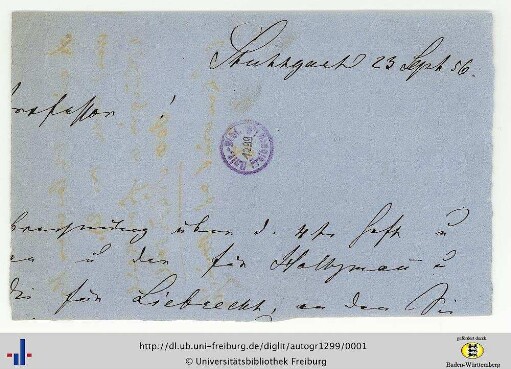 Stuttgart 23 Sept 56.
rofessor!
über d. 4te Heft u
u den für Holtzmann u
die für Liebrecht, an den Sie
http://dl.ub.uni-freiburg.de/diglit/autogr1299/0001
© Universitätsbibliothek Freiburg
gefördert durch
Baden-Württemberg